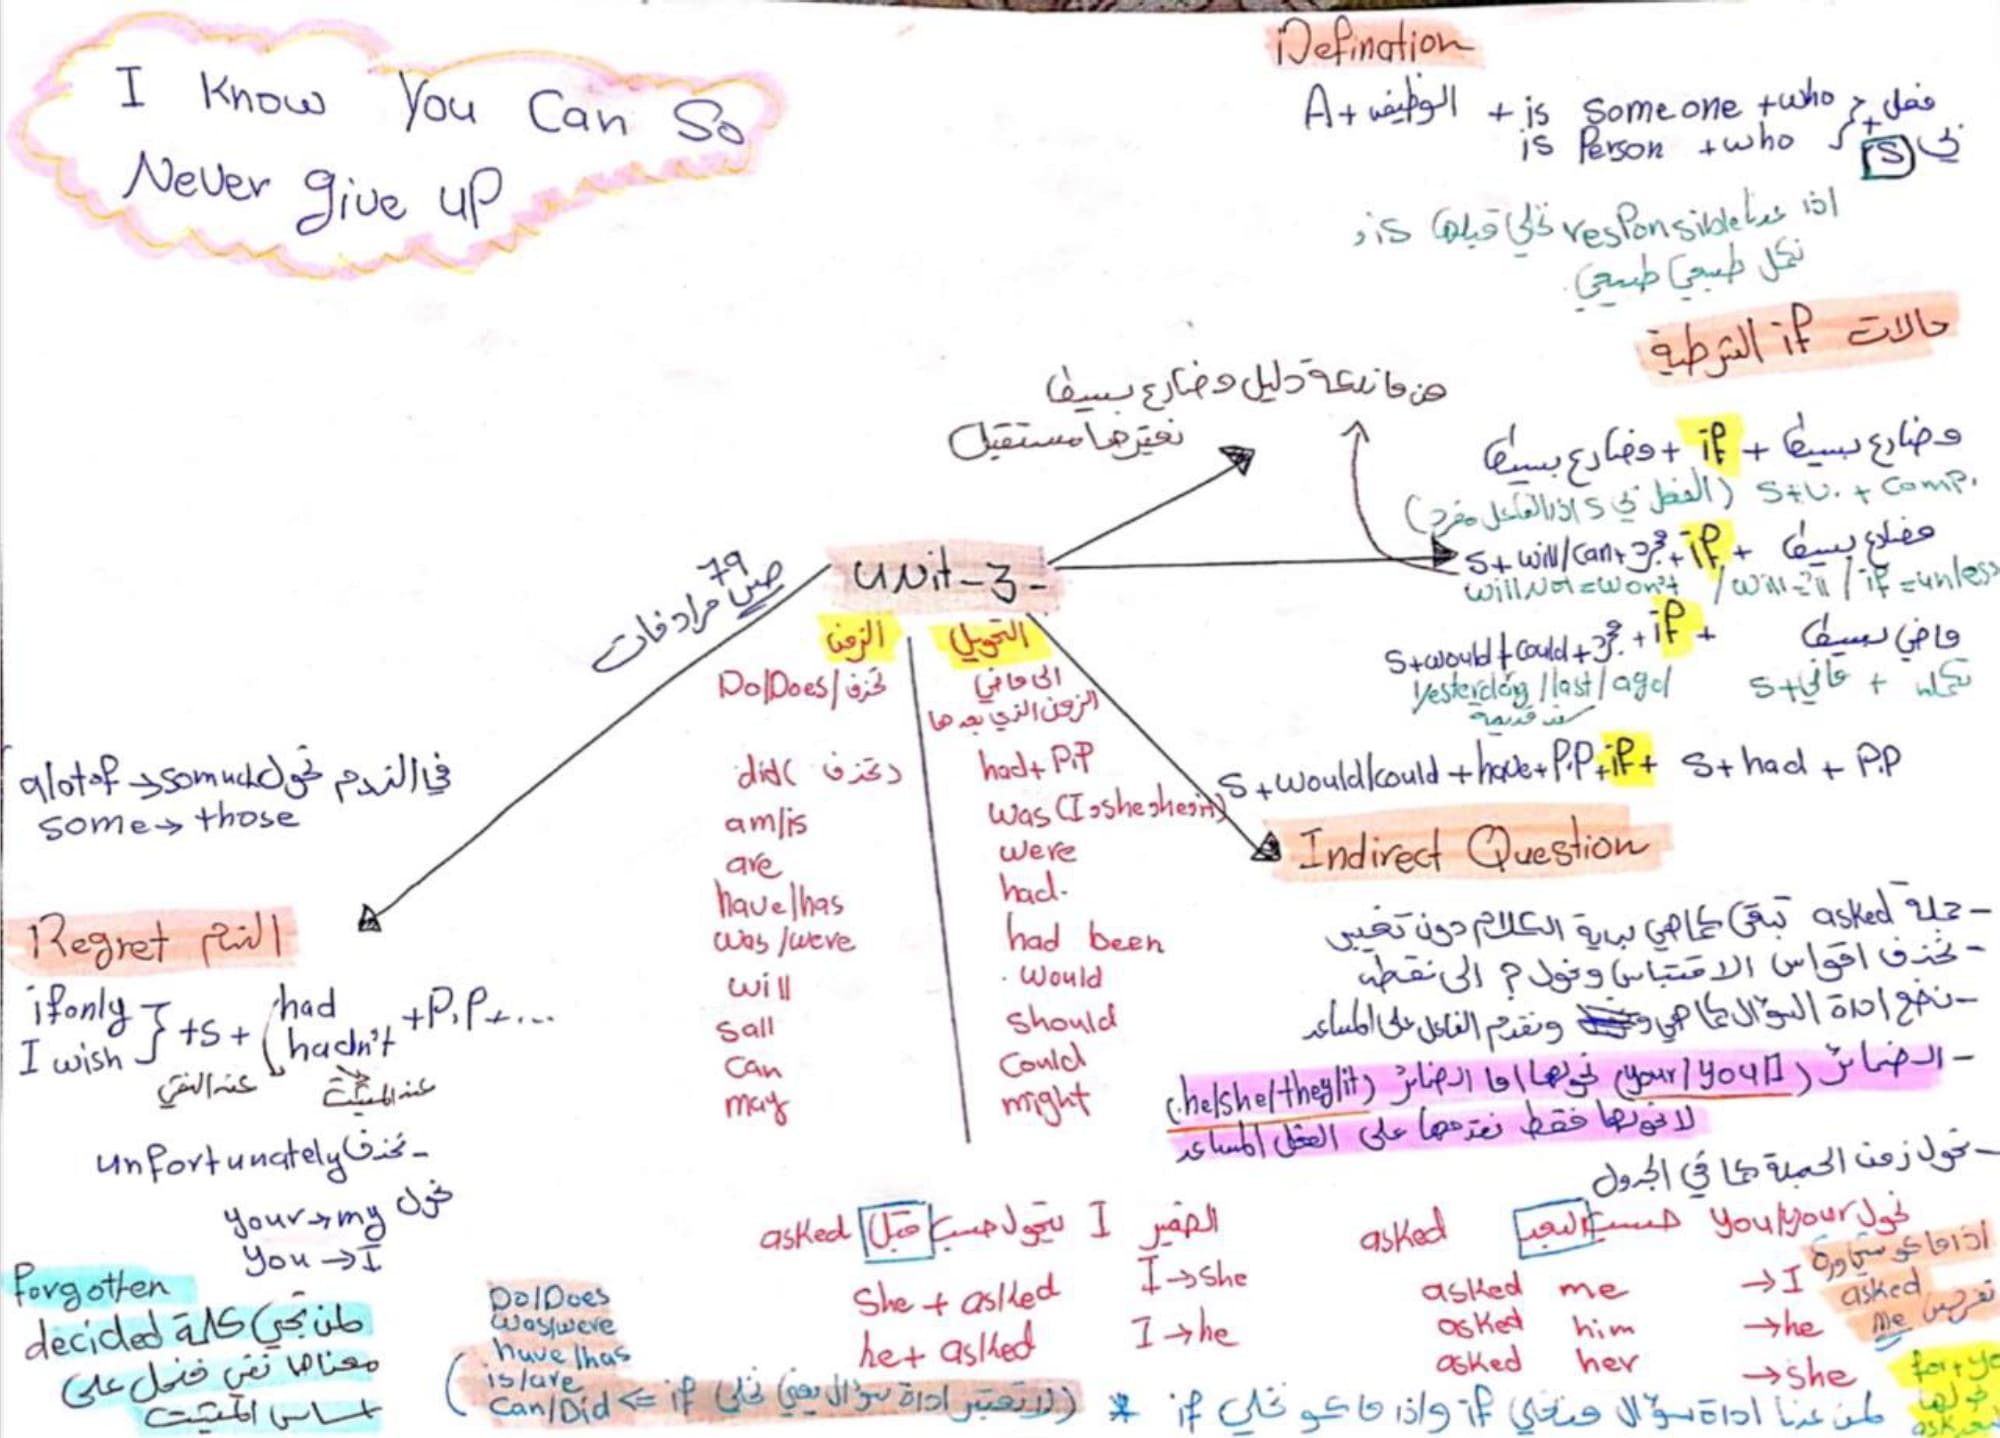 I Know You Can So
Never give up
Defination
A + الوظيفة + is Someone + who } فعل +
is Person + who } في S
اذا عدنا responsible نخلي قبلها is و
نكمل طبيعي طبيعي.
حالات if الشرطية
مضارع بسيط + if + مضارع بسيط
S+V. + Comp. (الفعل في S اذا الفاعل مفرد)
دليل مضارع بسيط
نغيرها مستقبل
S+ will/can + مج + if + مضارع بسيط
will not = won't / will = 'll / if = unless
S+would/could + مج + if + ماضي بسيط
yesterday / last / ago / سنة قديمة
S + ماضي + تكملة
S+would/could + have + P.P + if + S + had + P.P
unit-3-
ص 79 مرادفات
الزمن | التحويل
Do/Does/ تحذف | الى ماضي
الزمن الذي بعدها
did( وتحذف ) | had + P.P
am/is | was (I و she و he و it)
are | were
have/has | had.
was/were | had been
will | would
Sall | Should
Can | Could
may | might
في الندم نحول a lot of → so much
some → those
Regret الندم
if only } + S + ( had + P.P + ...
I wish } hadn't
عند النفي عند المثبت
- نحذف unfortunately
نحول your → my
you → I
forgotten
decided لمن تجي كلمة
معناها نفي فنحل على
اساس المثبت
Indirect Question
- جملة asked تبقى كما هي بداية الكلام دون تغيير
- نحذف اقواس الاقتباس ونحول ? الى نقطة
- نضع اداة السؤال كما هي ونقدم الفاعل على المساعد
- الضمائر (your/you/I) نحولها اما الضمائر (he/she/they/it)
لا نحولها فقط نقدمها على الفعل المساعد
- نحول زمن الجملة كما في الجدول
نحول you/your حسب البعد asked
asked me → I
asked him → he
asked her → she
اذا ماكو
asked
me
الضمير I يتحول حسب قبل asked
She + asked I → she
he + asked I → he
Do/Does
was/were
have/has
is/are
Can/Did <= if (لا تعتبر اداة سؤال يعني نخلي
* لمن عدنا اداة سؤال منخلي if واذا ماكو نخلي if